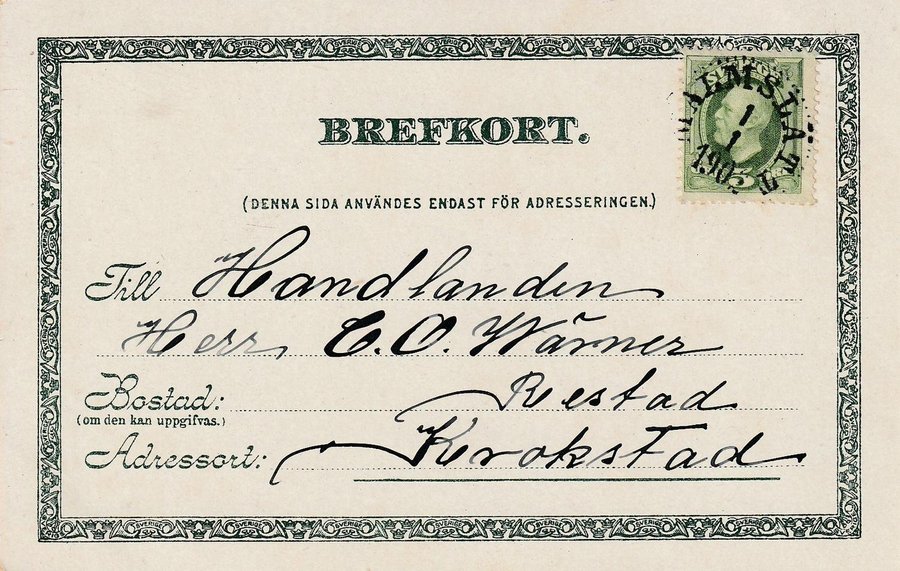 BREFKORT.
MALMSLÄTT
1
1
190
5
(DENNA SIDA ANVÄNDES ENDAST FÖR ADRESSERINGEN.)
Till Handlanden
Herr C. O. Wärner
Bostad: Restad
(om den kan uppgifvas.)
Adressort: Krokstad